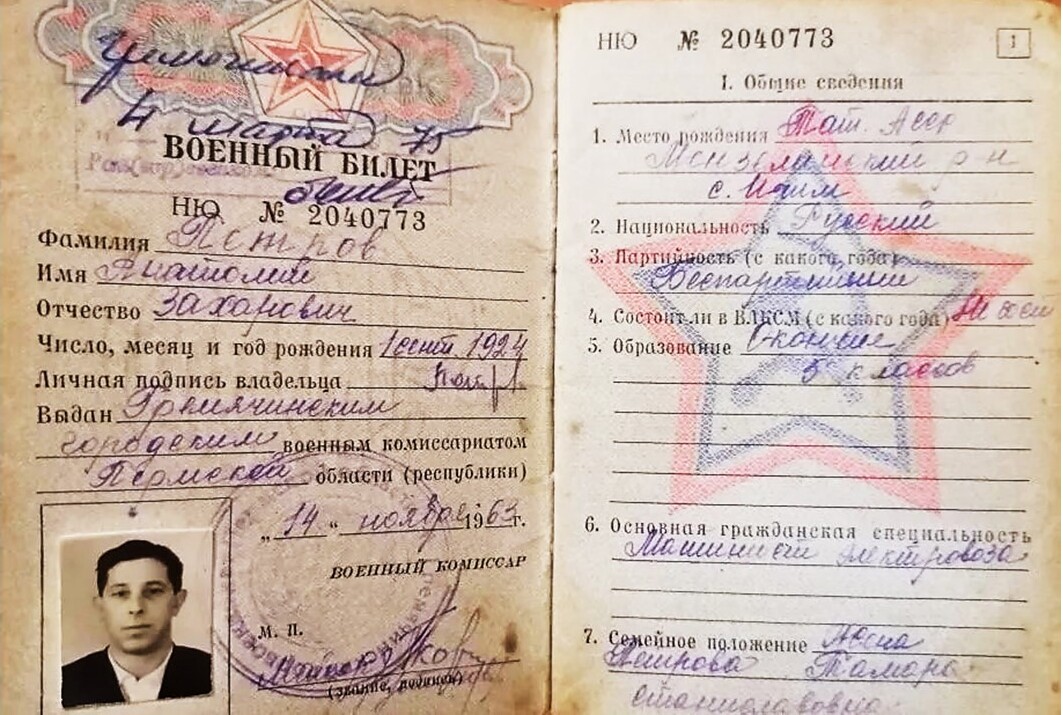 4 марта 75
ВОЕННЫЙ БИЛЕТ
НЮ № 2040773
Фамилия Петров
Имя Анатолий
Отчество Захарович
Число, месяц и год рождения 1 сент. 1924
Личная подпись владельца
Выдан Гремячинским
городским военным комиссариатом
Пермской области (республики)
„14“ ноября 1963 г.
ВОЕННЫЙ КОМИССАР
М. П.
(звание, подпись)
НЮ № 2040773
1
I. Общие сведения
1. Место рождения Тат. Асср
Мензелинский р-н
с.
2. Национальность Русский
3. Партийность (с какого года)
Беспартийный
4. Состоял ли в ВЛКСМ (с какого года) Не
5. Образование
5 классов
6. Основная гражданская специальность
Машинист электровоза
7. Семейное положение Жена
Петрова Тамара
Станиславовна